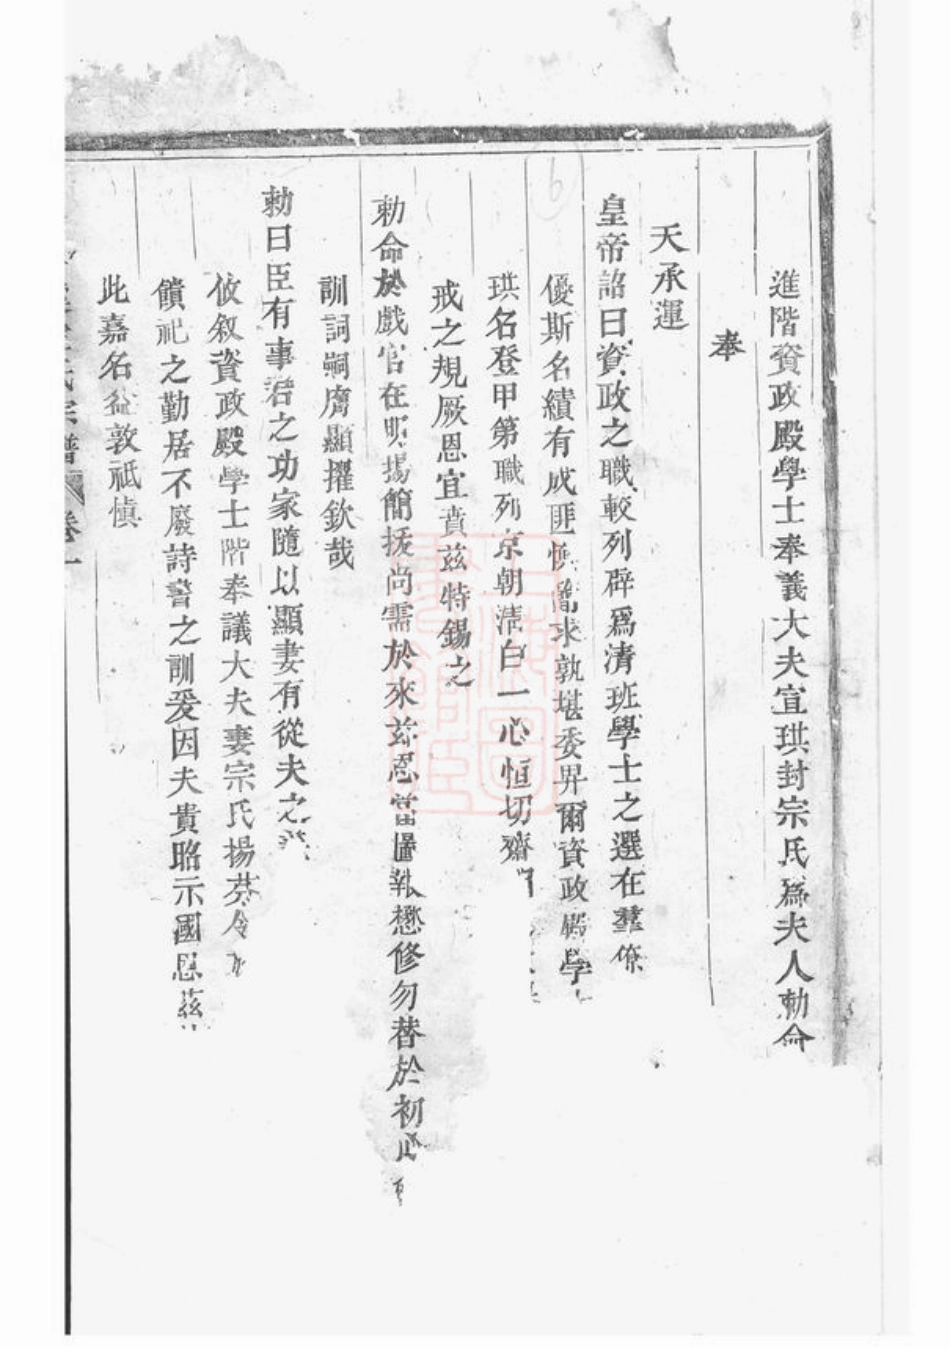 進階資政殿學士奉義大夫宣珙封宗氏爲夫人勅命
奉
天承運
皇帝詔曰資政之職較列辟爲清班學士之選在羣僚
優斯名績有成匪懊 求孰堪委畀爾資政殿學
珙名登甲第職列京朝清白一心恒切齋
戒之規厥恩宜賁茲特錫之
勅命於戲官在明揚簡拔尚需於來茲恩當 懋修勿替於初心
訓詞嗣膺顯擢欽哉
勅曰臣有事君之功家隨以顯妻有從夫之
攸敘資政殿學士階奉議大夫妻宗氏揚芬令
饋祀之勤居不廢詩書之訓爰因夫貴昭示國恩茲
此嘉名益敦祗慎
氏宗譜 卷一
上海圖書館藏